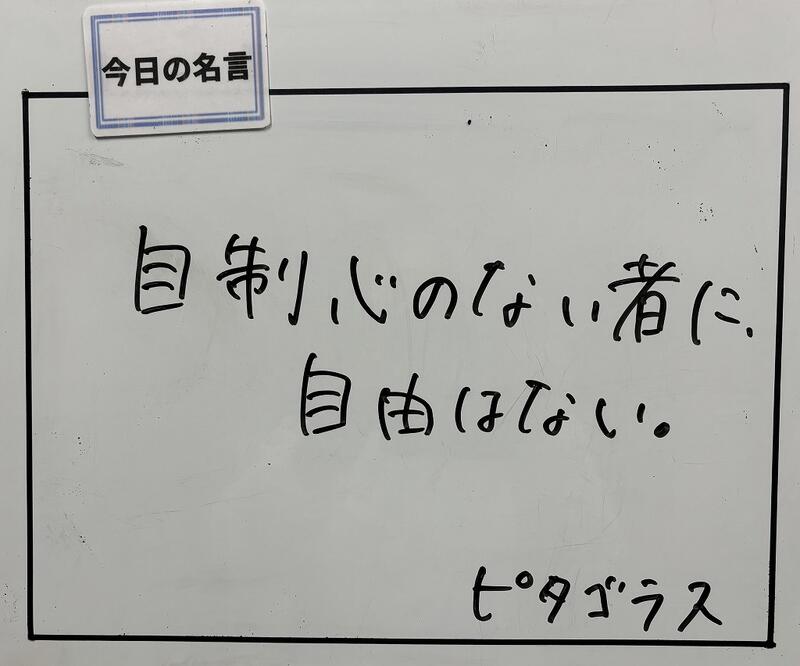 今日の名言
自制心のない者に、
自由はない。
ピタゴラス